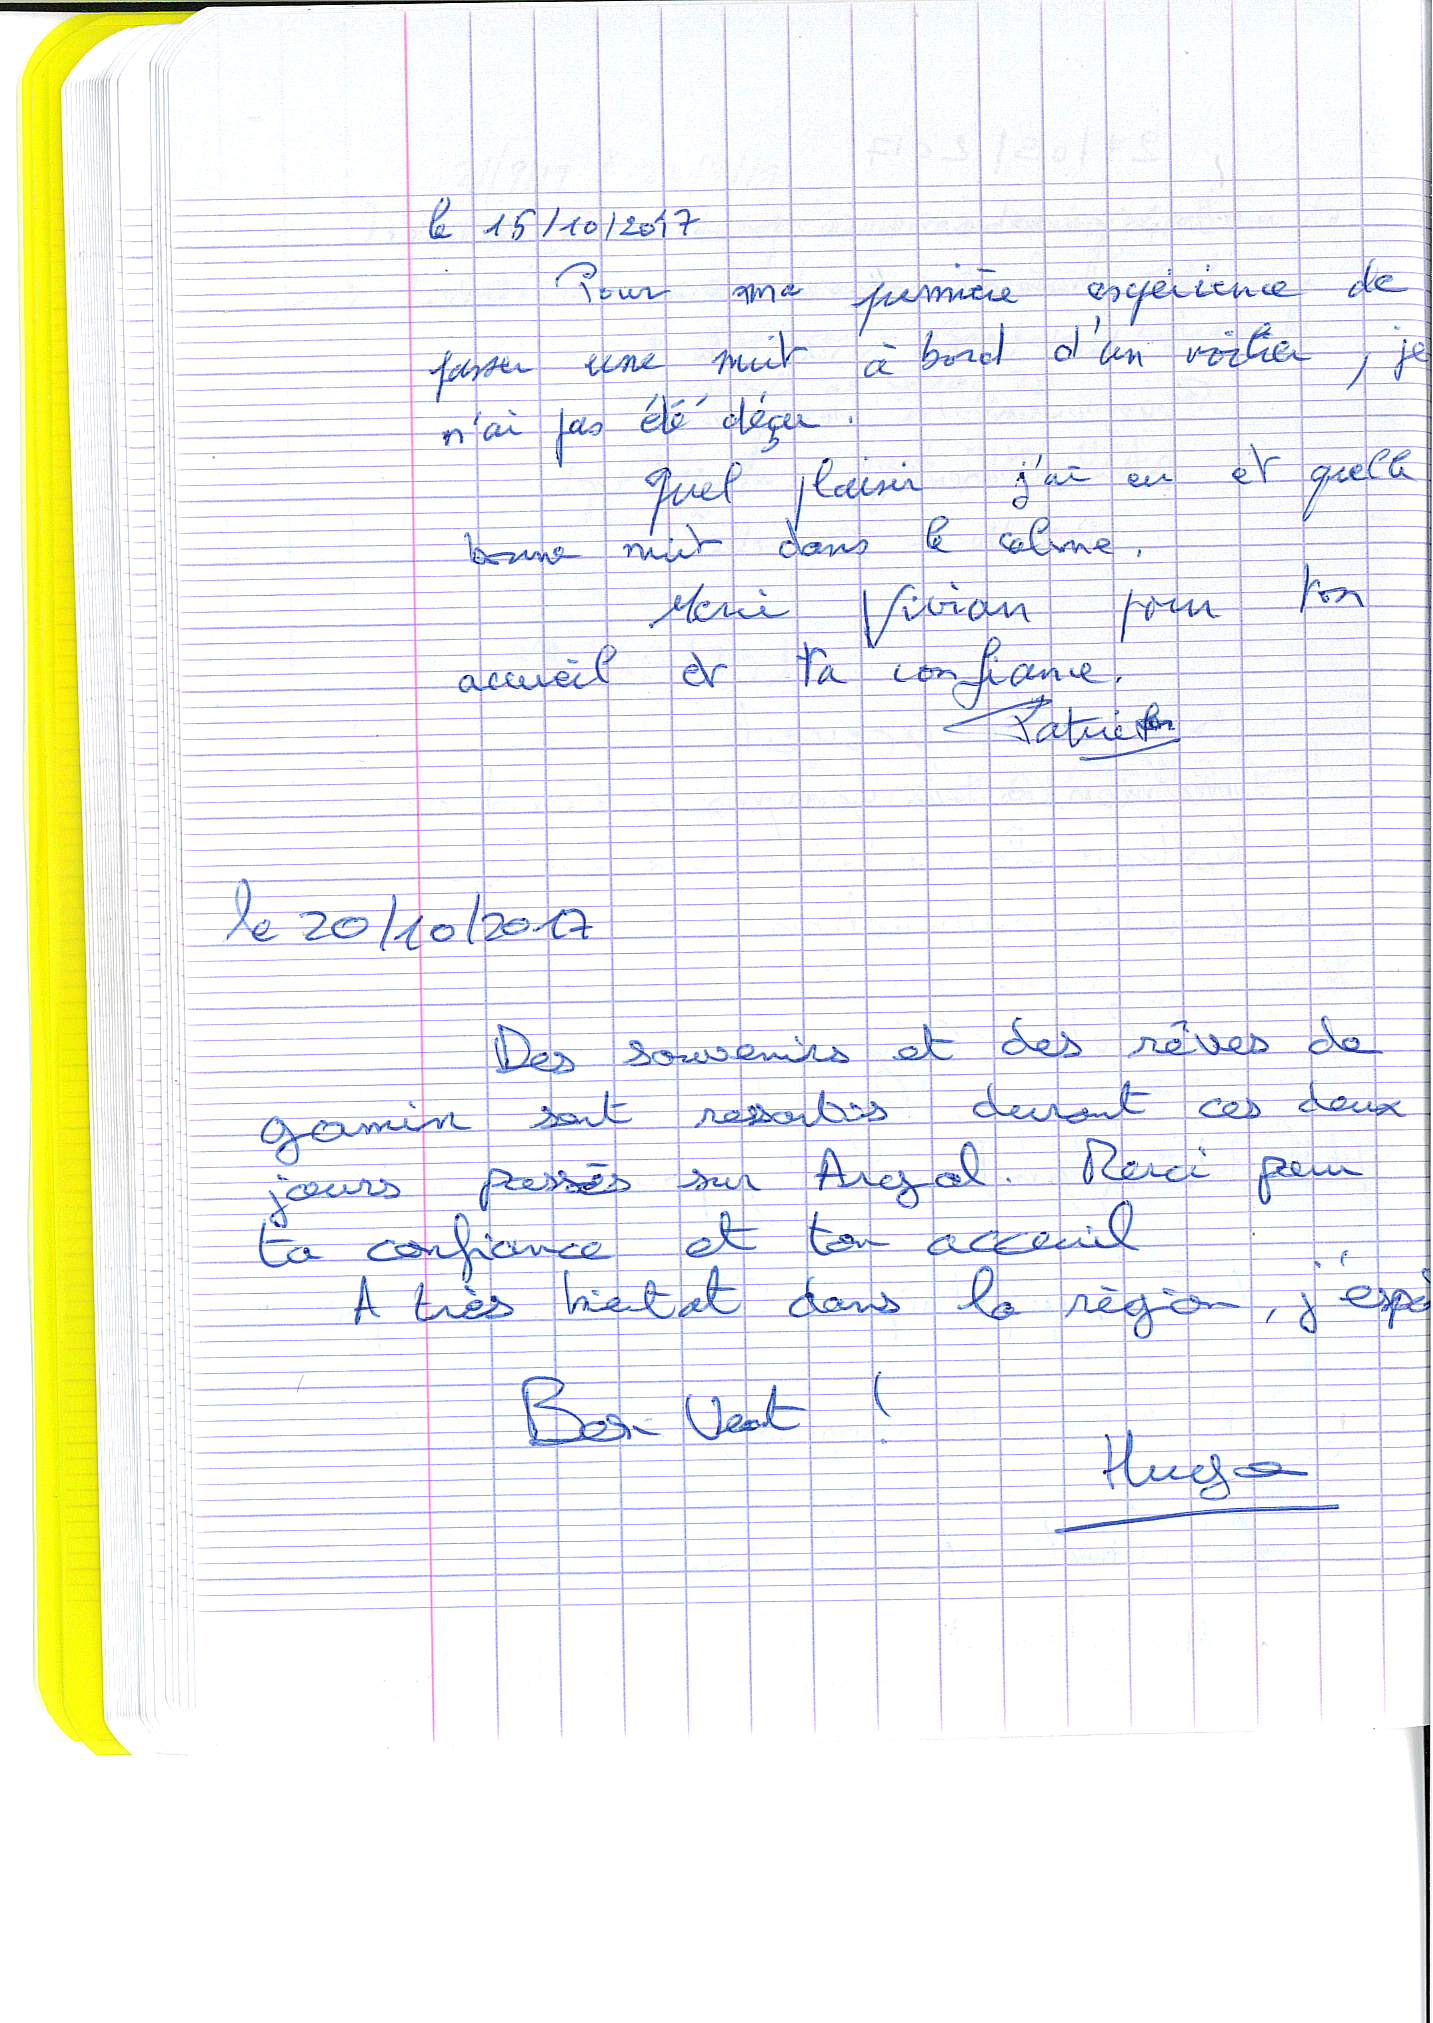 le 15/10/2017
Pour ma première expérience de
passer une nuit à bord d'un voilier, je
n'ai pas été déçu.
Quel plaisir j'ai eu et quelle
bonne nuit dans le calme.
Merci Vivian pour ton
accueil et ta confiance.
le 20/10/2017
Des souvenirs et des rêves de
gamin sont ressortis durant ces deux
jours passés sur Argol. Merci pour
ta confiance et ton acceuil
A très bientot dans la région, j'espè
Bon Vent !
Hugo